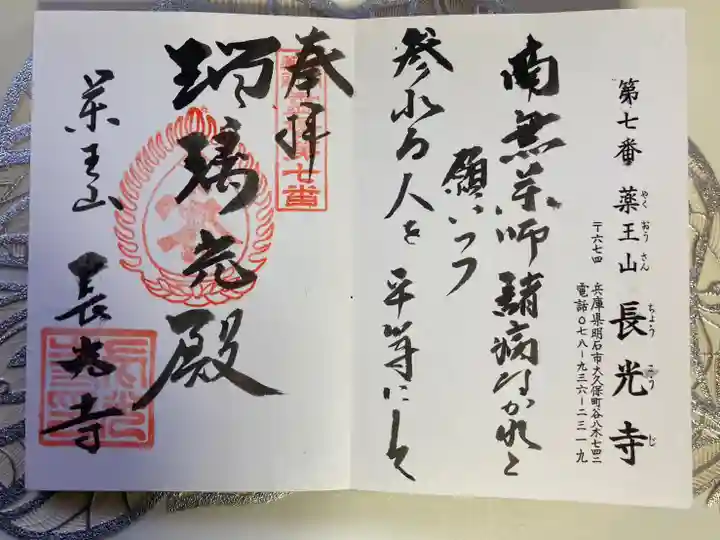 第七番 薬王山 長光寺
やく おう さん ちょう こう じ
〒六七四
兵庫県明石市大久保町谷八木七四二
電話〇七八ー九三六ー二三一九
南無薬師諸病なかれと
願いつつ
参れる人を 平等にして
奉拝
第七番
瑠璃光殿
薬王山 長光寺